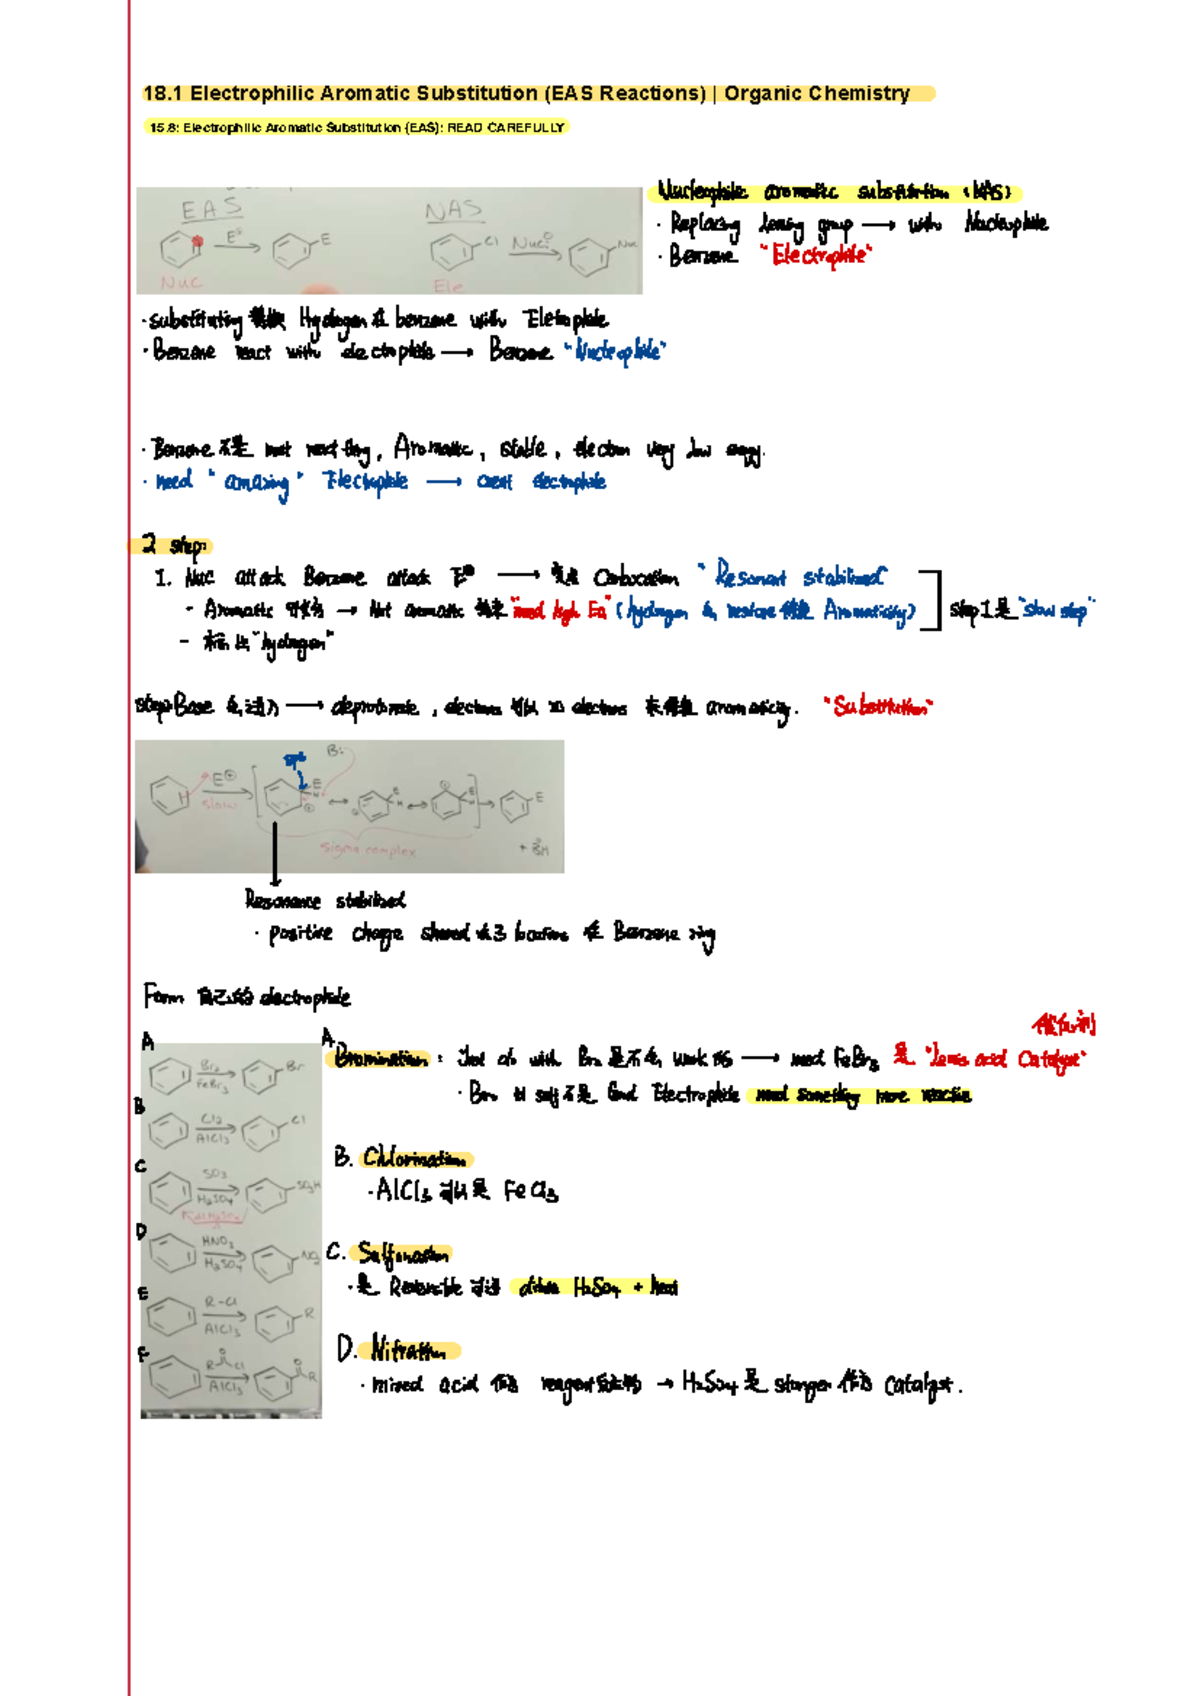 18.1 Electrophilic Aromatic Substitution (EAS Reactions) | Organic Chemistry
15.8: Electrophilic Aromatic Substitution (EAS): READ CAREFULLY
EAS
NAS
E⊕
E
Cl
Nuc:⊖
Nuc
Nuc
Ele
Nucleophilic aromatic substitution (NAS)
· Replacing leaving group → with Nucleophile
· Benzene "Electrophile"
· Substituting Hydrogen 在 benzene with Eletrophile
· Benzene react with electrophile → Benzene "Nucleophile"
· Benzene 不是 most reacting, Aromatic, stable, electron very low energy.
· need "amazing" Electrophile → great electrophile
2 step:
1. Nuc attack Benzene attack E⊕ → Carbocation "Resonant stabilized"
- Aromatic → Not aromatic "need high Ea" (hydrogen restore Aromaticity)
Step 1 是 "slow step"
"hydrogen"
Base → deprotonate, electrons electrons aromaticity. "Substitution"
sp3
B:
H
E⊕
slow
E
sigma complex
+ BH
Resonance stabilized
· positive charge shared 在 3 locations 在 Benzene ring
Form 自己的 electrophile
A
Br2
FeBr3
Br
B
Cl2
AlCl3
Cl
C
SO3
H2SO4
SO3H
D
HNO3
H2SO4
NO2
E
R-Cl
AlCl3
R
F
R
O
Cl
AlCl3
O
R
A.
催化剂
Bromination: Just do with Br2 是不会 work 的 → need FeBr3 是 "Lewis acid Catalyst"
· Br2 不是 Good Electrophile need something more reactive
B. Chlorination
· AlCl3 可以是 FeCl3
C. Sulfonation
· 是 Reversible 可逆 dilute H2SO4 + heat
D. Nitration
· mixed acid reagent → H2SO4 是 stronger 作为 catalyst.